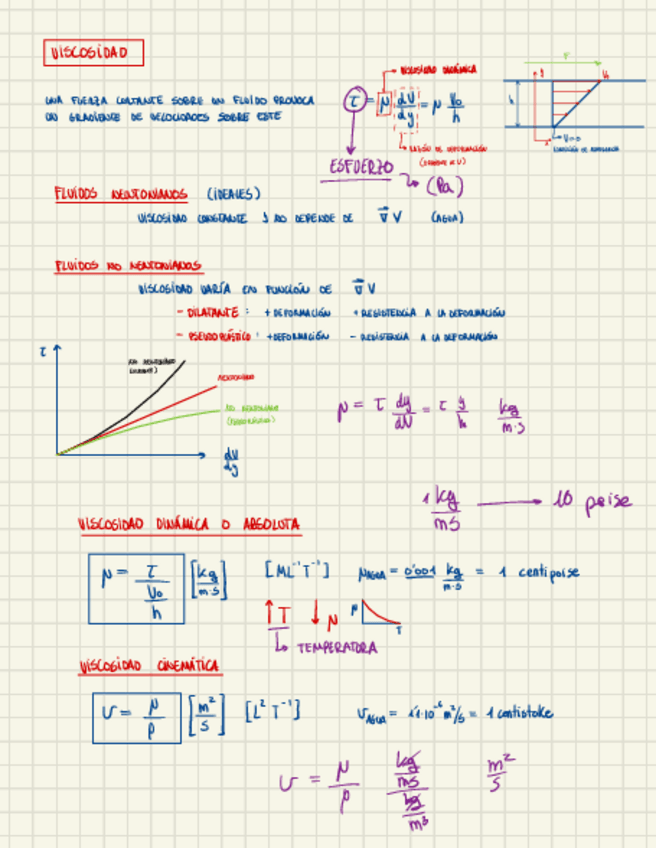 VISCOSIDAD
UNA FUERZA CORTANTE SOBRE UN FLUIDO PROVOCA
UN GRADIENTE DE VELOCIDADES SOBRE ESTE
VISCOSIDAD DINÁMICA
τ = μ dV/dy = μ V₀/h
RAZÓN DE DEFORMACIÓN
ESFUERZO (Pa)
F
V₀
h
V=0
FLUIDOS NEWTONIANOS (IDEALES)
VISCOSIDAD CONSTANTE Y NO DEPENDE DE ∇⃗V (AGUA)
FLUIDOS NO NEWTONIANOS
VISCOSIDAD VARÍA EN FUNCIÓN DE ∇⃗V
- DILATANTE: + DEFORMACIÓN + RESISTENCIA A LA DEFORMACIÓN
- PSEUDOPLÁSTICO: + DEFORMACIÓN - RESISTENCIA A LA DEFORMACIÓN
τ
NO NEWTONIANO
NEWTONIANO
NO NEWTONIANO
dV/dy
μ = τ dy/dV = τ y/h kg/m·s
1 kg/ms → 10 poise
VISCOSIDAD DINÁMICA O ABSOLUTA
μ = τ/(V₀/h) [kg/m·s] [ML⁻¹T⁻¹] μAGUA = 0'001 kg/m·s = 1 centipoise
↑T ↓μ μ T
TEMPERATURA
VISCOSIDAD CINEMÁTICA
υ = μ/ρ [m²/s] [L²T⁻¹] υAGUA = 1'1·10⁻⁶ m²/s = 1 centistoke
υ = μ/ρ (kg/ms)/(kg/m³) m²/s